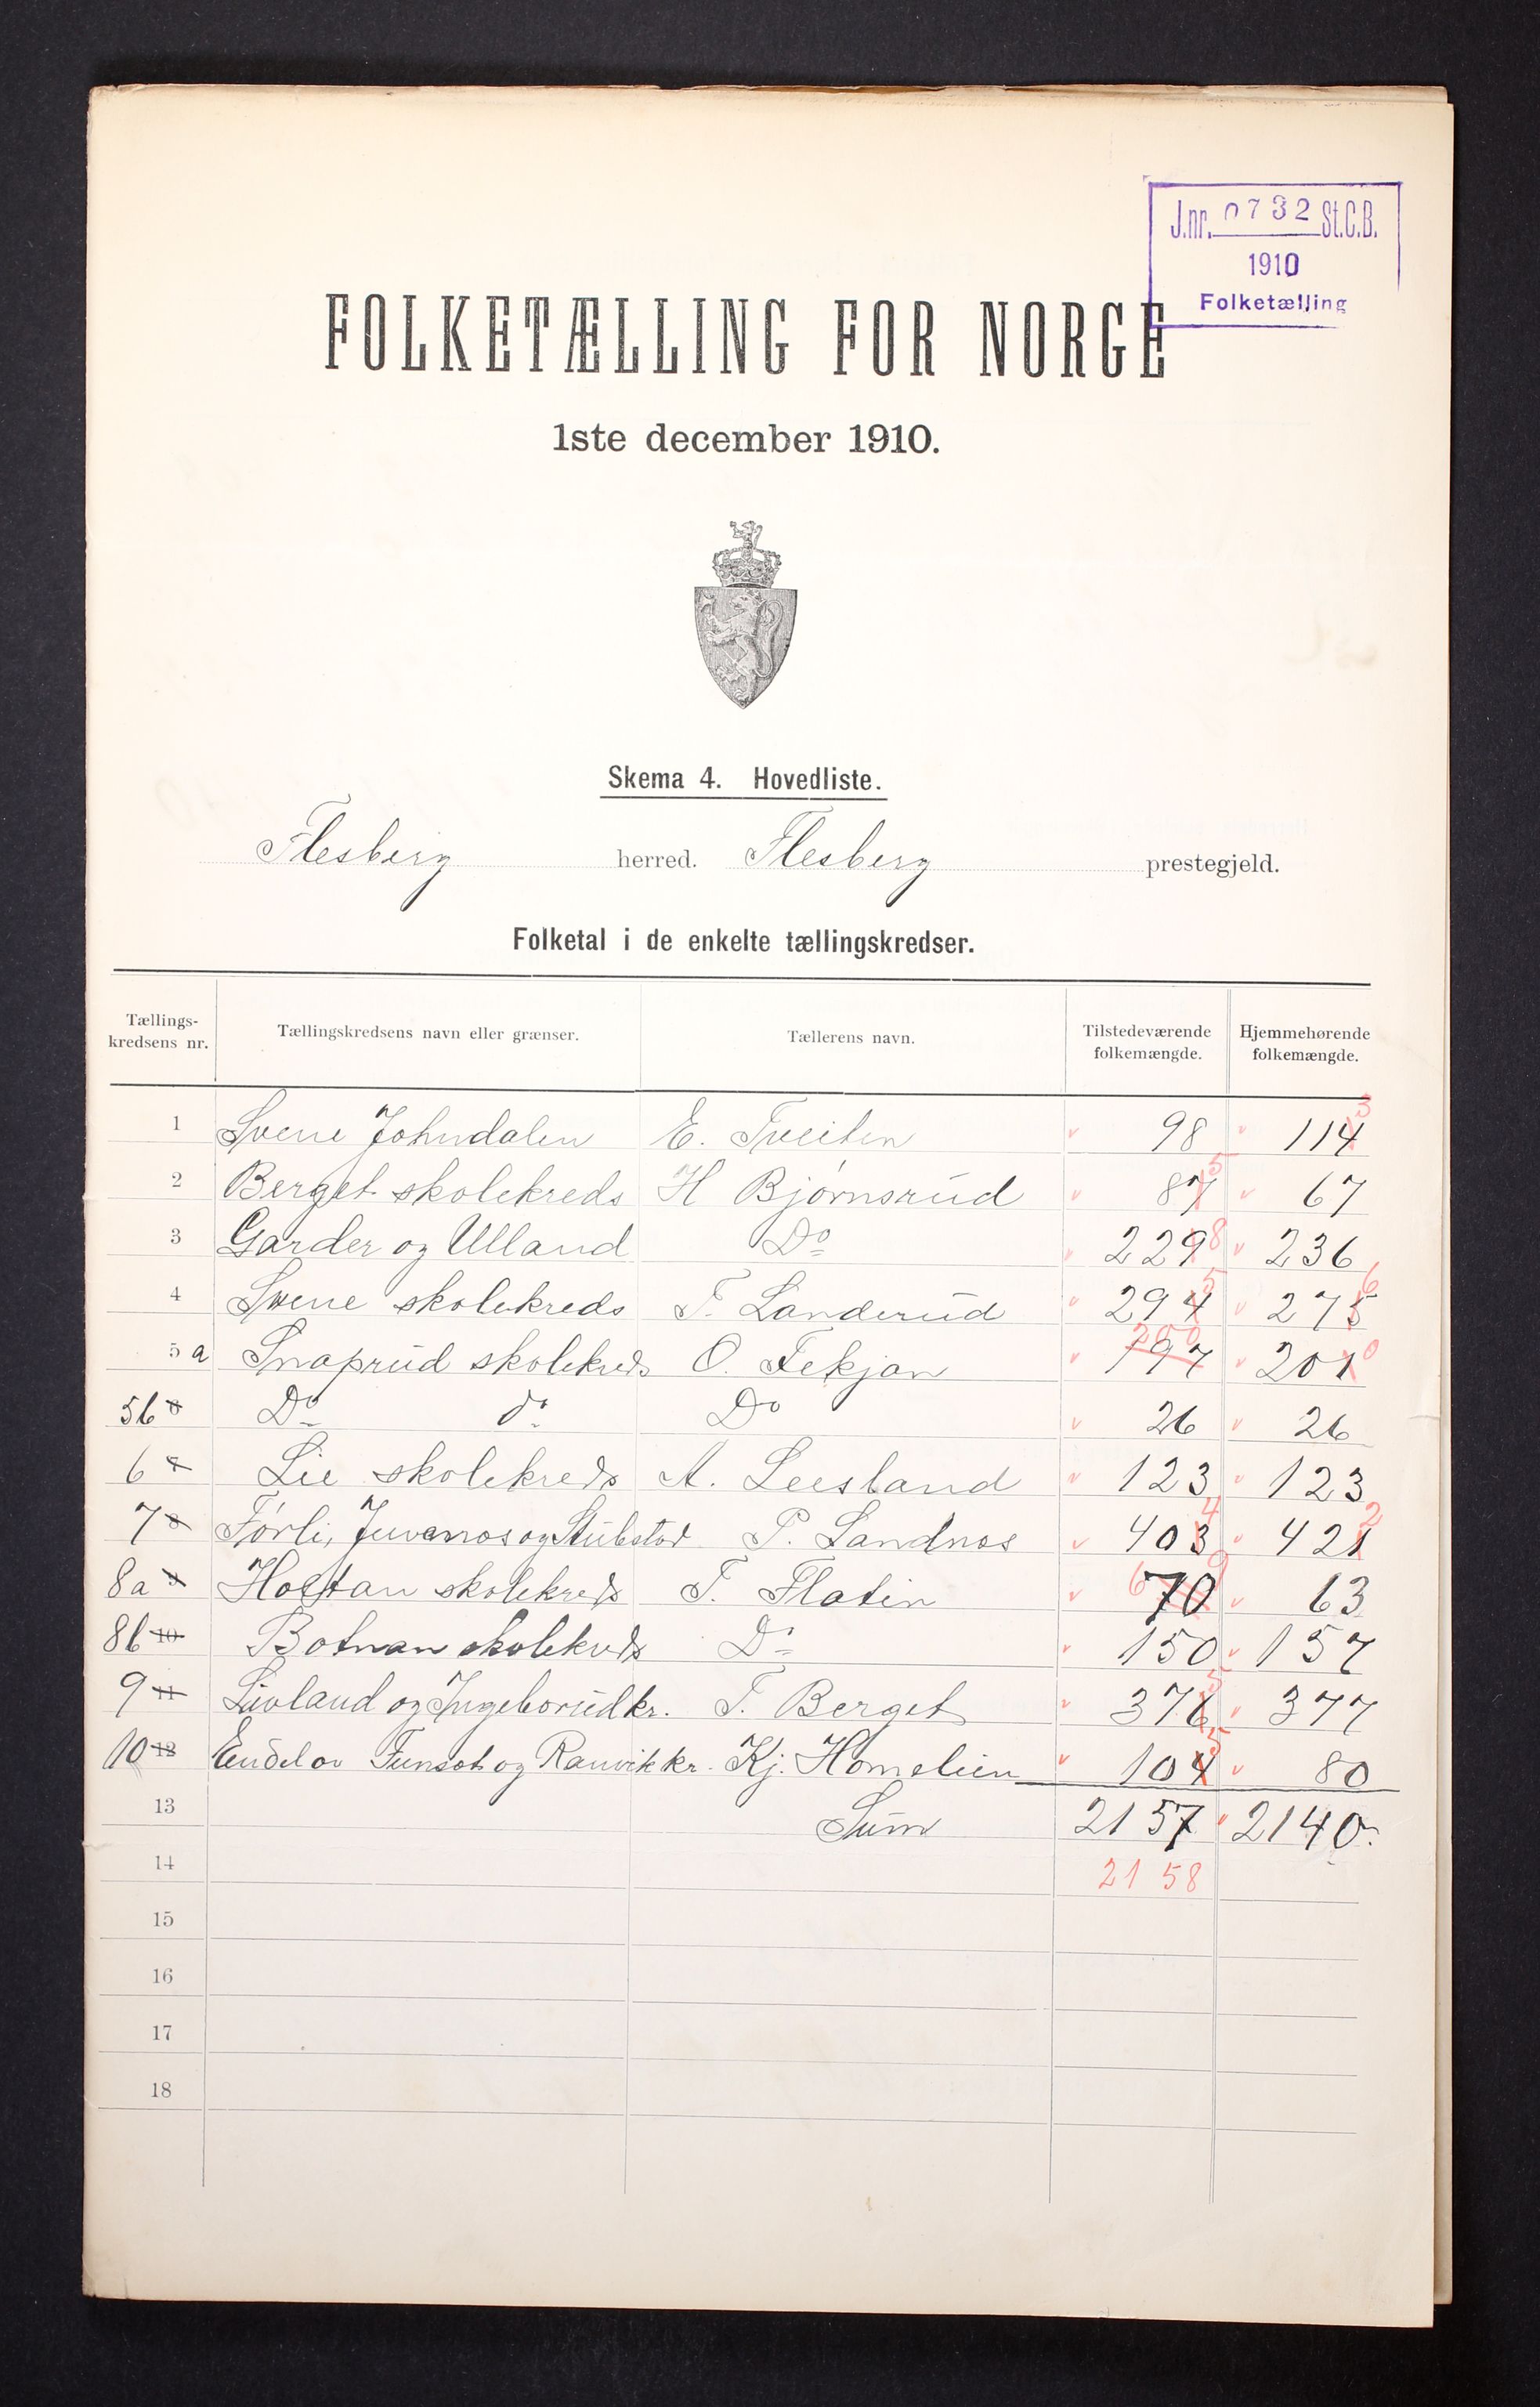 J.nr. 0732 St.C.B.
1910
Folketælling
FOLKETÆLLING FOR NORGE
1ste december 1910.
Skema 4. Hovedliste.
Flesberg herred. Flesberg prestegjeld.
Folketal i de enkelte tællingskredser.
Tællings-kredsens nr. Tællingskredsens navn eller grænser. Tællerens navn. Tilstedeværende folkemængde. Hjemmehørende folkemængde.
1 Svene Johndalen E. Tveiten 98 114 3
2 Berget skolekreds H Bjørnsrud 87 5 67
3 Garder og Ulland Do 229 8 236
4 Svene skolekreds T. Landerud 294 5 275 6
5 a Snaprud skolekreds O. Fekjan 197 200 201 0
5b 6 Do do Do 26 26
6 7 Lie skolekreds A. Leesland 123 123
7 8 Førli, Juvenes og Stubstad P. Landnos 403 4 421 2
8a 9 Hostan skolekreds T. Flatin 70 69 63
8b 10 Botnan skolekreds Do 150 157
9 11 Livland og Ingeborrud kr. T. Berget 376 5 377
10 12 Endel av Funsat og Ranvik kr. Kj. Homelien 104 5 80
13 Sum 2157 2140
14 2158
15
16
17
18